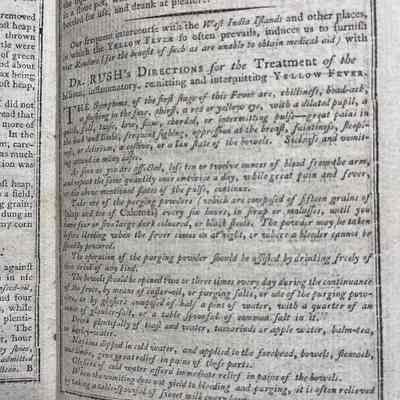 removed
ost heap;
thrown
tle were
of green
d about
ax being
ost heap,
did not
ead that
more of
In the
m; care-
as much
tion was
ost heap,
a field,
grain;
dung in
my corn
against
in use
four
while
plenti-
The
four,
admitted
B
settled for use, and drank at pleasure.
Our frequent intercourse with the West India Islands and other places,
in which the YELLOW FEVER so often prevails, induces us to furnish
our Readers (for the benefit of such as are unable to obtain medical aid) with
DR. RUSH's DIRECTIONS for the Treatment of the
bilious, inflammatory, remitting and intermitting YELLOW FEVER.
THE Symptoms of the first stage of this Fever are, chilliness, head-ach,
a flushing in the face, a red or yellow eye, with a dilated pupil, a
full, tense, low, slow, chorded, or intermitting pulse—great pains in
frequent sighing, oppression at the breast, faintness, sleepi-
or delirium, a costive, or a lax state of the bowels. Sickness and vomit-
ing attend in many cases.
As soon as you are affected, lose ten or twelve ounces of blood from the arm,
and repeat the same quantity once or twice a day, while great pain and fever,
or the above mentioned states of the pulse, continue.
Take one of the purging powders (which are composed of fifteen grains of
Jalap and ten of Calomel) every six hours, in sirup or molasses, until you
have four or five large dark coloured, or black stools. The powder may be taken
before bleeding when the fever comes on at night, or when a bleeder cannot be
speedily procured.
The operation of the purging powder should be assisted by drinking freely of
thin drink of any kind.
The bowels should be opened two or three times every day during the continuance
of the fever, by means of castor-oil, or purging salts, or one of the purging pow-
ders, or by glysters composed of half a pint of water, with a quarter of an
ounce of glauber-salt, or a table spoonful of common salt in it.
Drink plentifully of toast and water, tamarinds or apple water, balm-tea,
or barley-water.
Napkins dipped in cold water, and applied to the forehead, bowels, stomach,
and limbs, give great relief in pains of those parts.
Glysters of cold water afford immediate relief in pains of the bowels.
When the vomiting does not yield to bleeding and purging, it is often relieved
by taking a table spoonful of sweet milk every